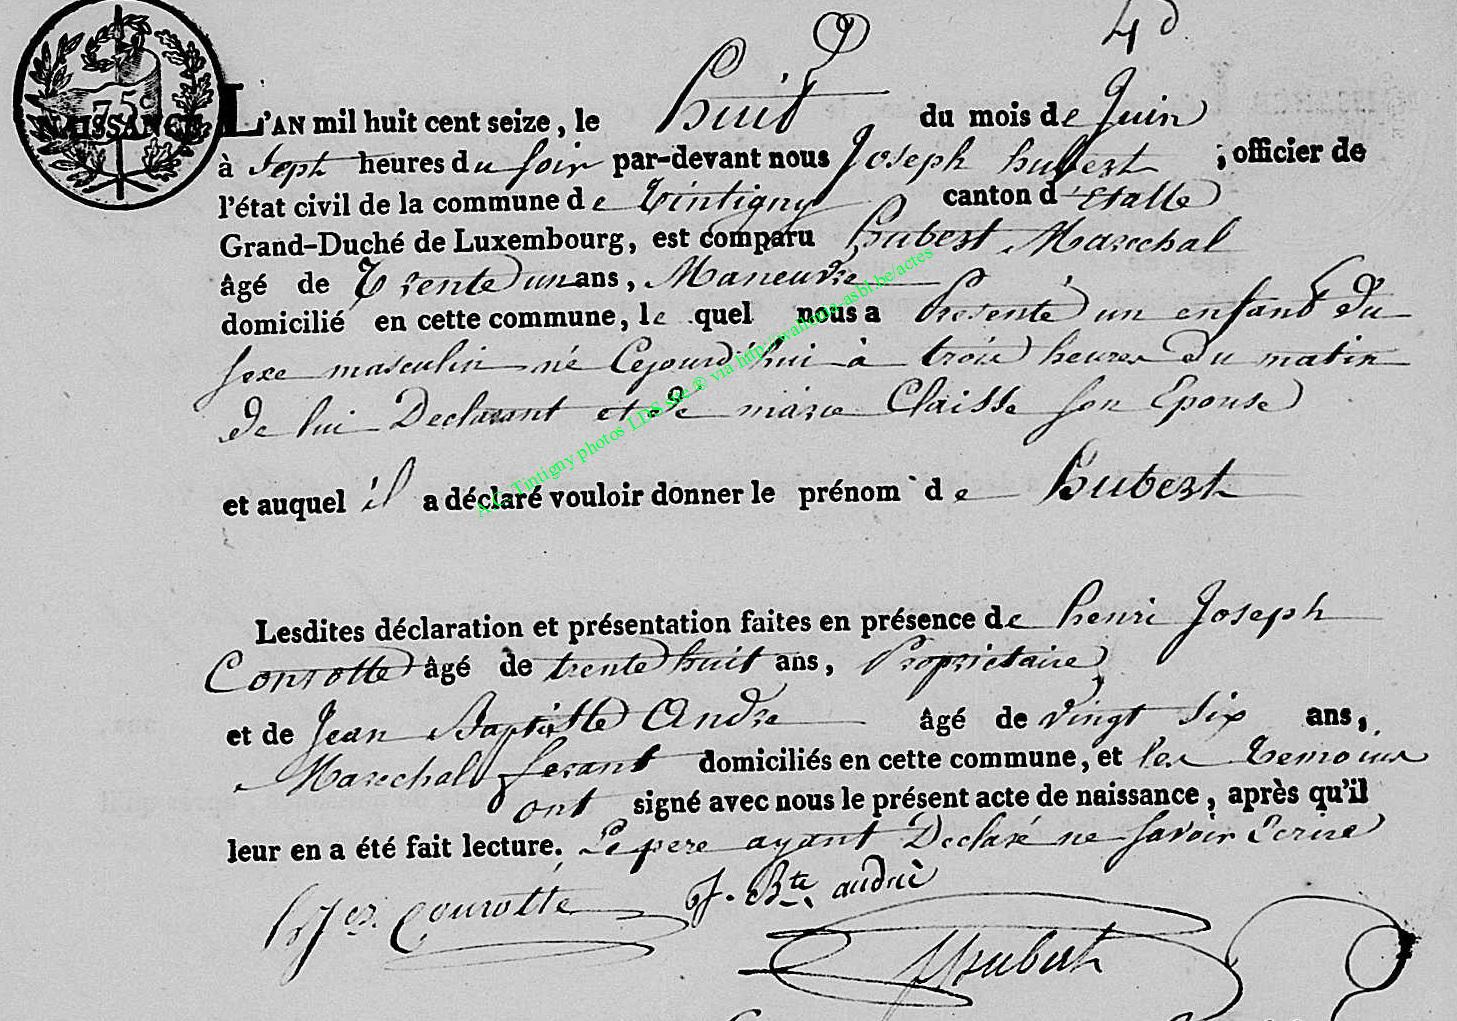 4d
75c
NAISSANCE
L'AN mil huit cent seize, le huit du mois de Juin
à Sept heures du soir par-devant nous Joseph hubert, officier de
l'état civil de la commune de Tintigny canton d'Etalle
Grand-Duché de Luxembourg, est comparu hubert Marechal
âgé de Trente un ans, Maneuvre
domicilié en cette commune, le quel nous a Presenté un enfant du
sexe masculin né Cejourd'hui à trois heures du matin
de lui Declarant et de marie Claisse son Epouse
et auquel il a déclaré vouloir donner le prénom de hubert
Lesdites déclaration et présentation faites en présence de henri Joseph
Conrotte âgé de trente huit ans, Proprietaire
et de Jean Baptiste Andre âgé de vingt six ans,
Marechal ferant domiciliés en cette commune, et les Temoins
ont signé avec nous le présent acte de naissance, après qu'il
leur en a été fait lecture. Le pere ayant Declaré ne savoir Ecrire
conrotte J. Bte andré
Hubert
A.C. Tintigny photos LDS site ® via http://wallonia-asbl.be/actes